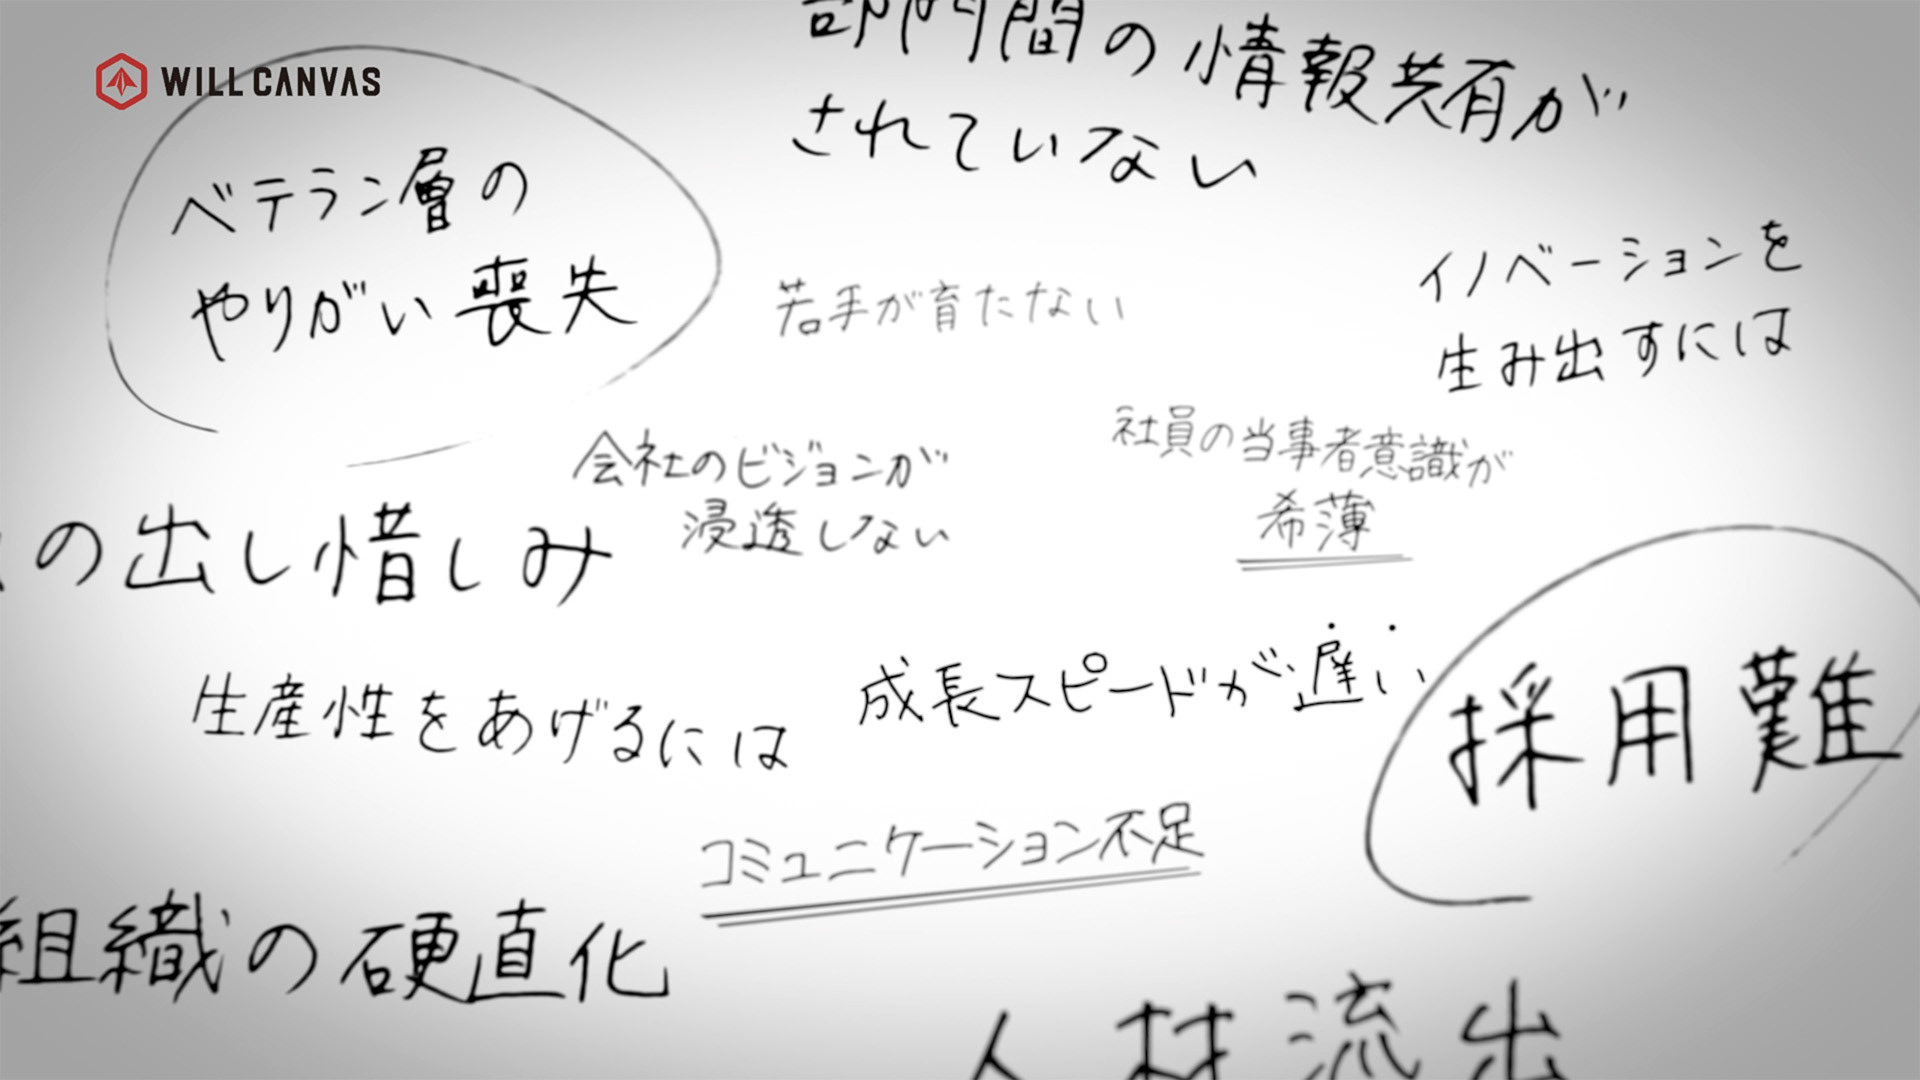 WILL CANVAS
部門間の情報共有が
されていない
ベテラン層の
やりがい喪失
若手が育たない
イノベーションを
生み出すには
会社のビジョンが
浸透しない
社員の当事者意識が
希薄
の出し惜しみ
生産性をあげるには
成長スピードが遅い
採用難
コミュニケーション不足
組織の硬直化
人材流出